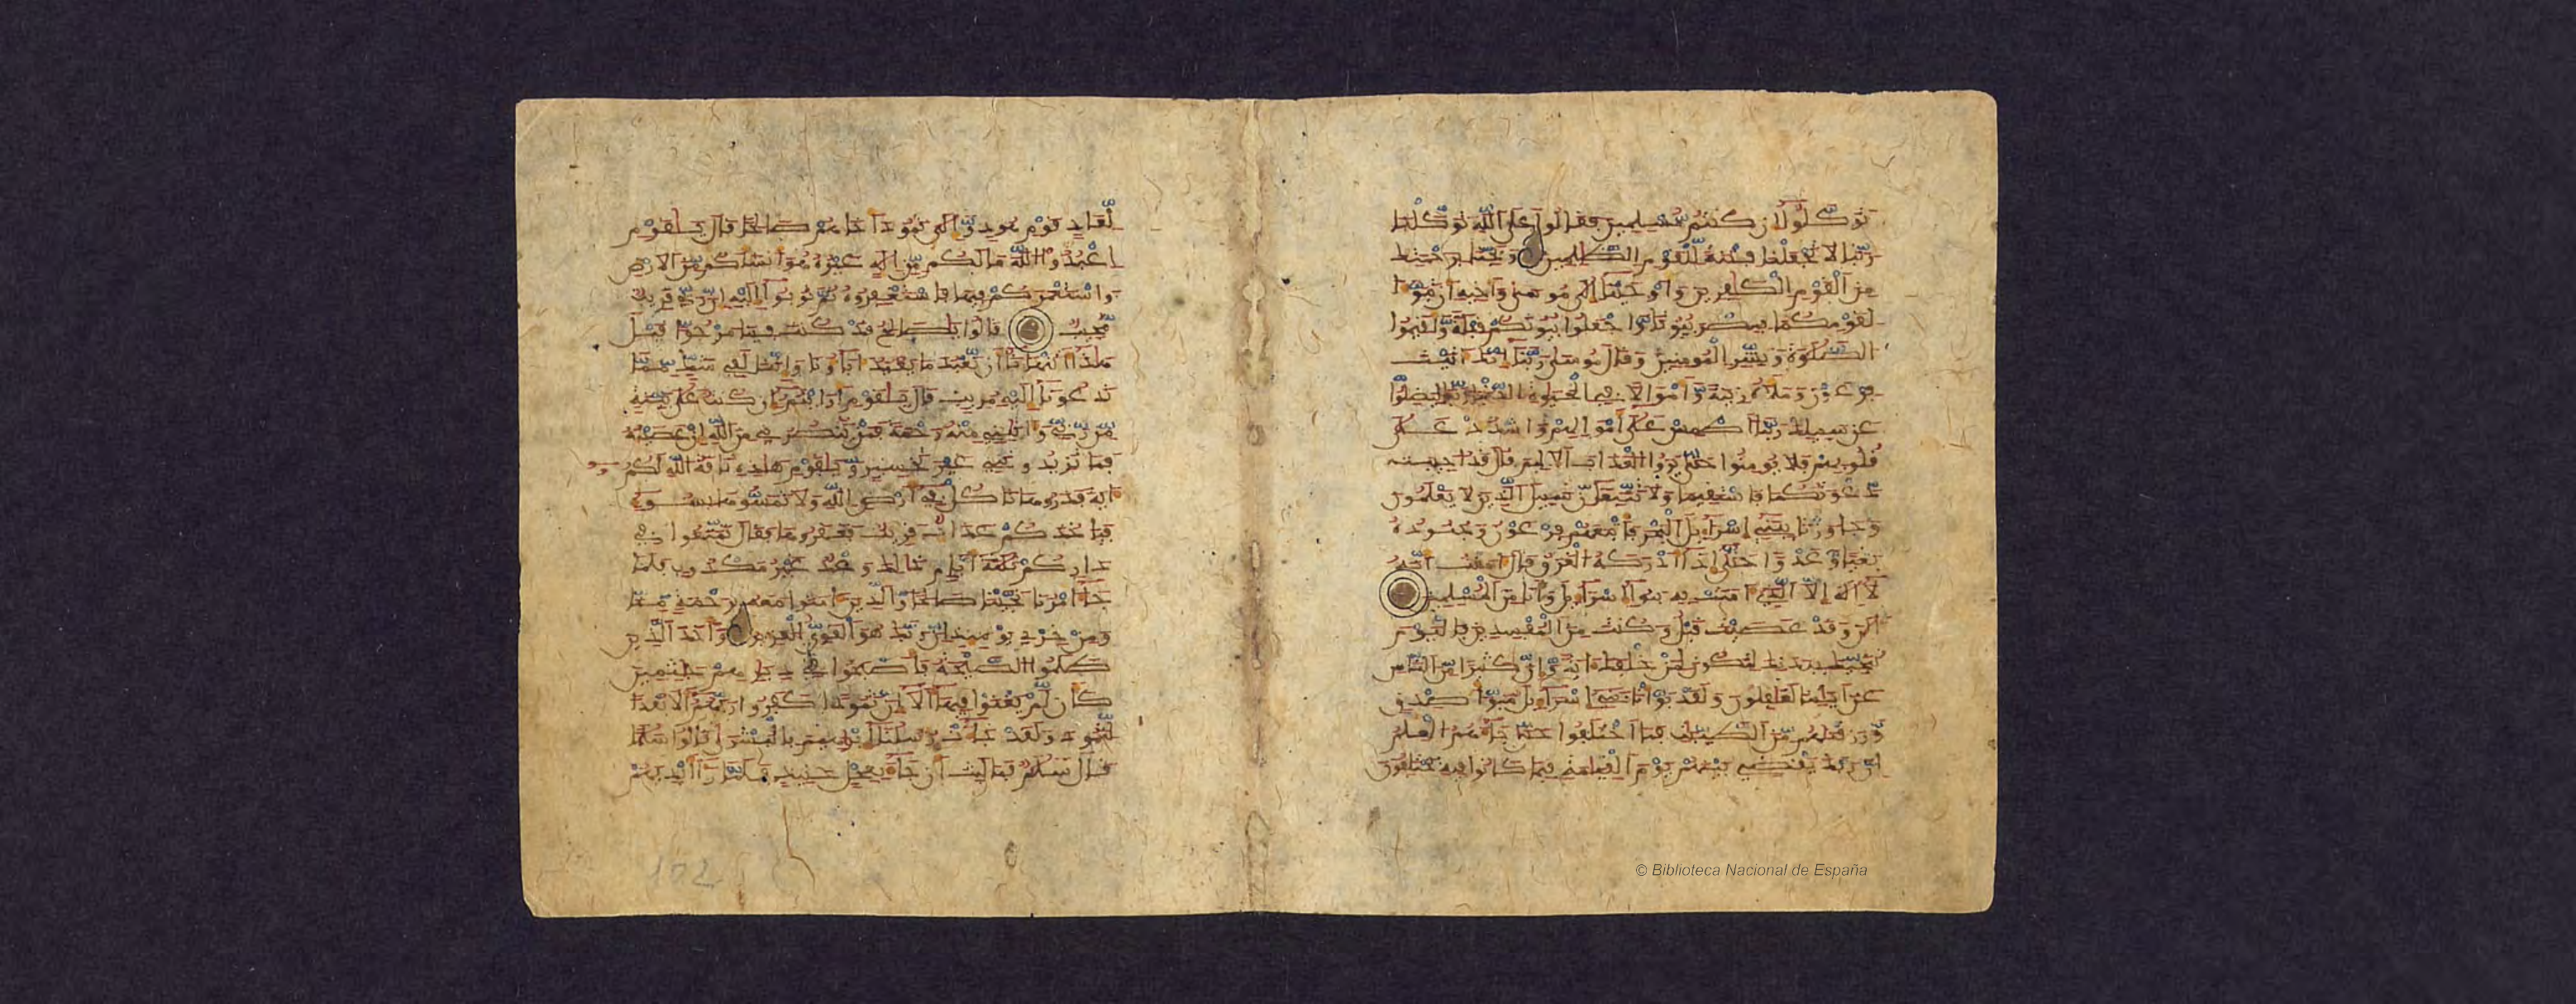 توكلوا إن كنتم مسلمين فقالوا على الله توكلنا
ربنا لا تجعلنا فتنة للقوم الظلمين ونجنا برحمتك
من القوم الكفرين وأوحينا إلى موسى وأخيه أن تبوءا
لقومكما بمصر بيوتا واجعلوا بيوتكم قبلة وأقيموا
الصلوة وبشر المومنين وقال موسى ربنا إنك ءاتيت
فرعون وملأه زينة وأموالا في الحيوة الدنيا ربنا ليضلوا
عن سبيلك ربنا اطمس على أموالهم واشدد على
قلوبهم فلا يومنوا حتى يروا العذاب الأليم قال قد أجيبت
دعوتكما فاستقيما ولا تتبعان سبيل الذين لا يعلمون
وجاوزنا ببني إسراءيل البحر فأتبعهم فرعون وجنوده
بغيا وعدوا حتى إذا أدركه الغرق قال ءامنت أنه
لا إله إلا الذي ءامنت به بنوا إسراءيل وأنا من المسلمين
ءالن وقد عصيت قبل وكنت من المفسدين فاليوم
ننجيك ببدنك لتكون لمن خلفك ءاية وإن كثيرا من الناس
عن ءايتنا لغفلون ولقد بوأنا بني إسراءيل مبوأ صدق
ورزقنهم من الطيبت فما اختلفوا حتى جاءهم العلم
إن ربك يقضي بينهم يوم القيمة فيما كانوا فيه يختلفون
لعاد قوم هود وإلى ثمود أخاهم صلحا قال يقوم
اعبدوا الله ما لكم من إله غيره هو أنشأكم من الأرض
واستعمركم فيها فاستغفروه ثم توبوا إليه إن ربي قريب
مجيب قالوا يصلح قد كنت فينا مرجوا قبل
هذا أتنهينا أن نعبد ما يعبد ءاباؤنا وإننا لفي شك مما
تدعونا إليه مريب قال يقوم أرايتم إن كنت على بينة
من ربي وءاتيني منه رحمة فمن ينصرني من الله إن عصيته
فما تزيدونني غير تخسير ويقوم هذه ناقة الله لكم
ءاية فذروها تاكل في أرض الله ولا تمسوها بسوء
فياخذكم عذاب قريب فعقروها فقال تمتعوا في
داركم ثلثة أيام ذلك وعد غير مكذوب فلما
جاء أمرنا نجينا صلحا والذين ءامنوا معه برحمة منا
ومن خزي يومئذ إن ربك هو القوي العزيز وأخذ الذين
ظلموا الصيحة فأصبحوا في ديرهم جثمين
كأن لم يغنوا فيها ألا إن ثمودا كفروا ربهم ألا بعدا
لثمود ولقد جاءت رسلنا إبرهيم بالبشرى قالوا سلما
قال سلم فما لبث أن جاء بعجل حنيذ فلما رءا أيديهم
102
© Biblioteca Nacional de España